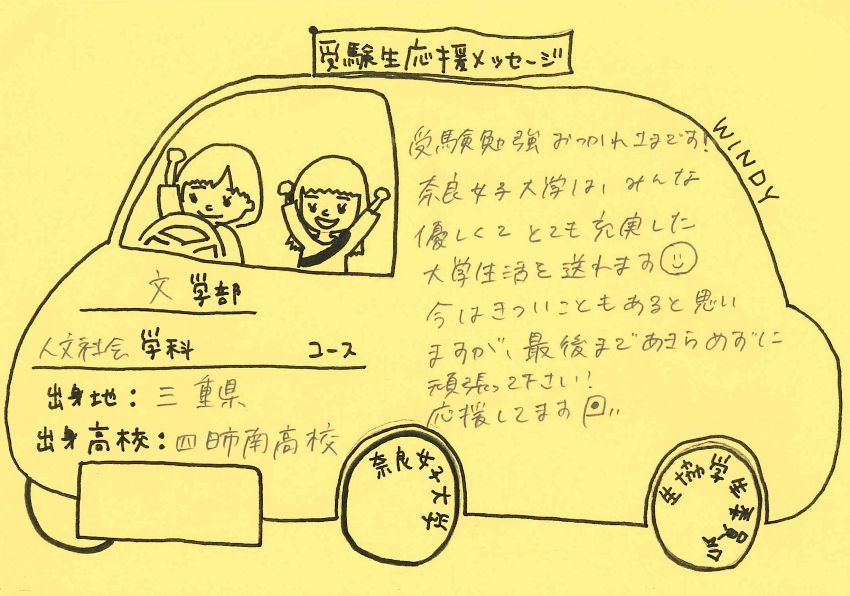 受験生応援メッセージ
WINDY
受験勉強 おつかれさまです!
奈良女子大学は、みんな
優しくて とても 充実した
大学生活を 送れます
今は きついことも あると 思い
ますが、最後まで あきらめずに
頑張って下さい!
応援してます
文 学部
人文社会 学科 コース
出身地: 三重県
出身高校: 四日市南高校
奈良女子大学
生協学生委員会